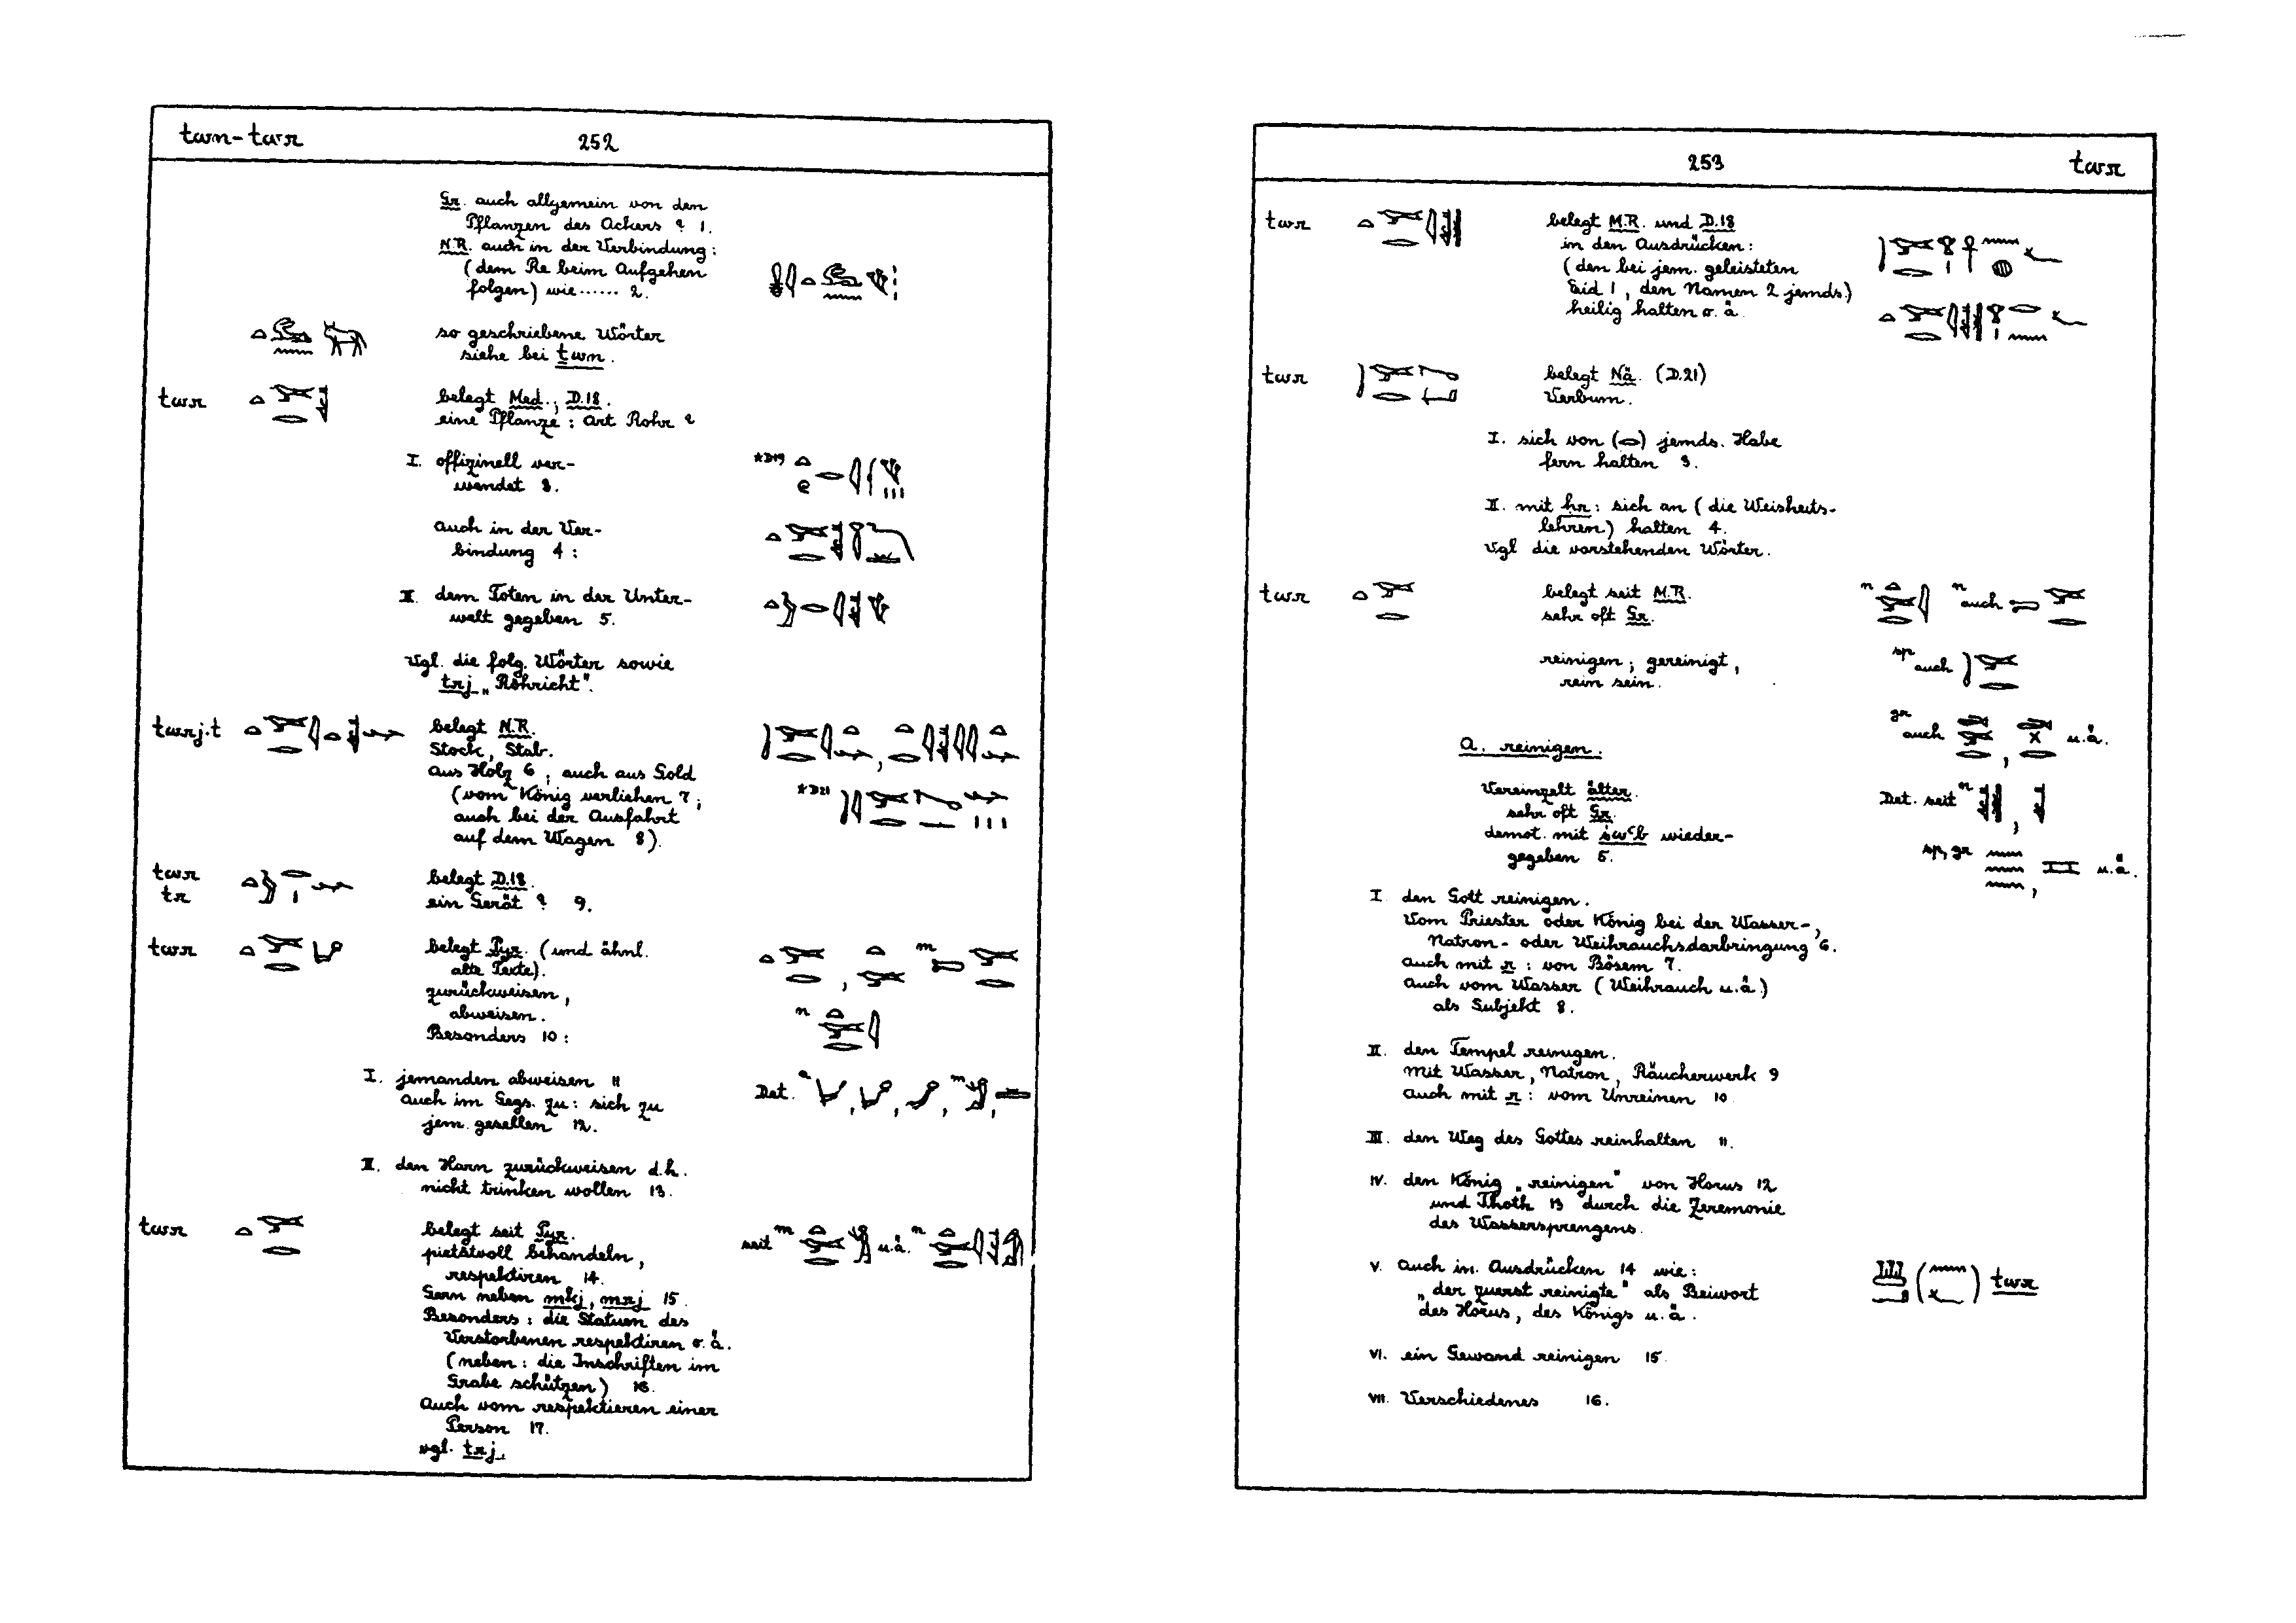 twn-twr 252
Gr. auch allgemein von den
Pflanzen des Ackers ? 1.
N.R. auch in der Verbindung:
(dem Re beim Aufgehen
folgen) wie ...... 2.
so geschriebene Wörter
siehe bei twn.
twr belegt Med.; D.18.
eine Pflanze: Art Rohr ?
I. offizinell ver-
wendet 3. *D19
auch in der Ver-
bindung 4:
II. dem Toten in der Unter-
welt gegeben 5.
Vgl. die folg. Wörter sowie
trj „Röhricht".
twrj.t belegt N.R.
Stock, Stab.
aus Holz 6; auch aus Gold
(vom König verliehen 7; *D21
auch bei der Ausfahrt
auf dem Wagen 8).
twr belegt D.18.
tr ein Gerät ? 9.
twr belegt Pyr. (und ähnl. m
alte Texte).
zurückweisen,
abweisen. n
Besonders 10:
I. jemanden abweisen 11
Det. a , , , m ,
auch im Gegs. zu: sich zu
jem. gesellen 12.
II. den Harn zurückweisen d.h.
nicht trinken wollen 13.
twr belegt seit Pyr. seit m u.ä. n
pietätvoll behandeln,
respektiren 14.
Gern neben mkj, mrj 15.
Besonders: die Statuen des
Verstorbenen respektiren o.ä.
(neben: die Inschriften im
Grabe schützen) 16.
Auch vom respektieren einer
Person 17.
vgl. trj.
253 twr
twr belegt M.R. und D.18
in den Ausdrücken:
(den bei jem. geleisteten
Eid 1, den Namen 2 jemds.)
heilig halten o.ä.
twr belegt Nä. (D.21)
Verbum.
I. sich von ( ) jemds. Habe
fern halten 3.
II. mit ḥr: sich an (die Weisheits-
lehren) halten 4.
Vgl die vorstehenden Wörter.
twr belegt seit M.R. n n auch
sehr oft Gr.
reinigen; gereinigt, sp auch
rein sein.
gr auch , u.ä.
A. reinigen.
Vereinzelt älter. Det. seit n ,
sehr oft Gr.
demot. mit swꜥb wieder-
gegeben 5. sp, gr , u.ä.
I. den Gott reinigen.
Vom Priester oder König bei der Wasser-,
Natron- oder Weihrauchsdarbringung 6.
auch mit r: von Bösem 7.
auch vom Wasser (Weihrauch u.ä.)
als Subjekt 8.
II. den Tempel reinigen.
mit Wasser, Natron, Räucherwerk 9
auch mit r: vom Unreinen 10
III. den Weg des Gottes reinhalten 11.
IV. den König „reinigen" von Horus 12
und Thoth 13 durch die Zeremonie
des Wassersprengens.
V. Auch in Ausdrücken 14 wie: ( ) twr
„der zuerst reinigte" als Beiwort
des Horus, des Königs u.ä.
VI. ein Gewand reinigen 15.
VII. Verschiedenes 16.